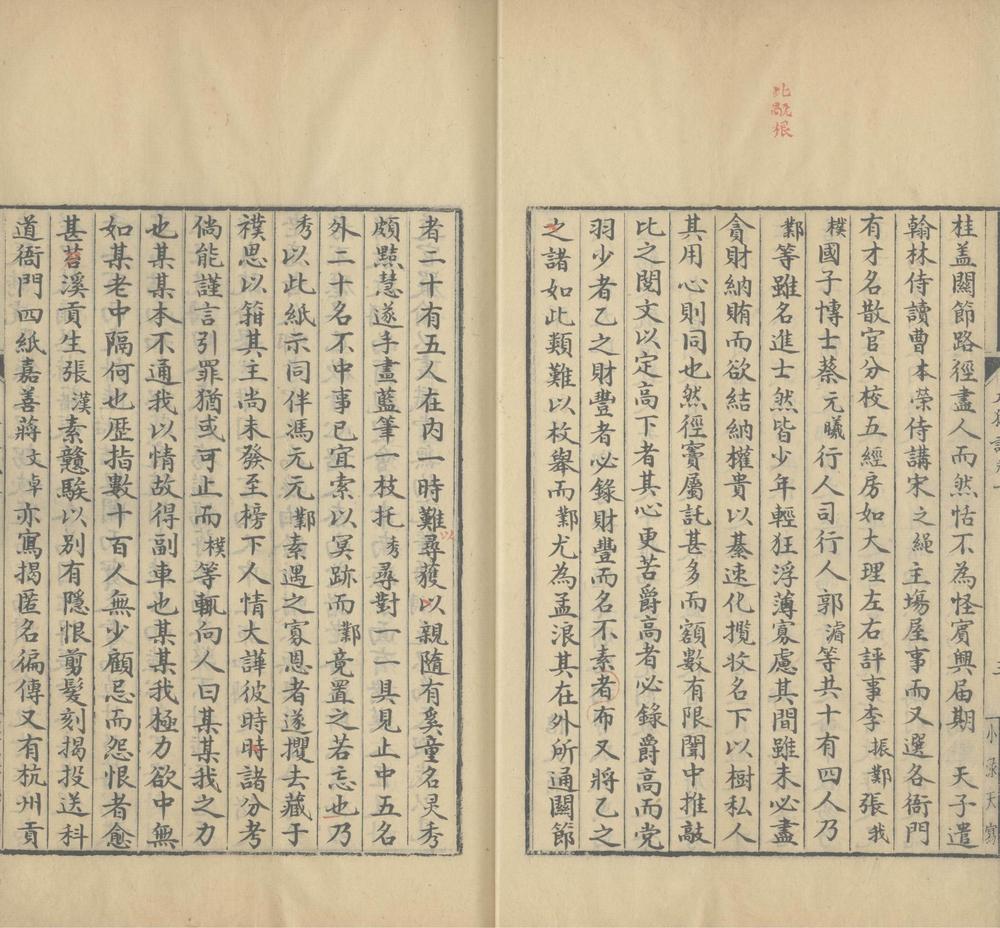 桂盖關節路徑盡人而然恬不為怪賓興届期　天子遣
翰林侍讀曹本榮侍講宋之繩主塲屋事而又選各衙門
有才名散官分校五經房如大理左右評事李振鄴張我
樸國子博士蔡元曦行人司行人郭濬等共十有四人乃
鄴等雖名進士然皆少年輕狂浮薄寡慮其間雖未必盡
貪財納賄而欲結納權貴以綦速化攬收名下以樹私人
其用心則同也然徑竇屬託甚多而額數有限闈中推敲
比之閱文以定高下者其心更苦爵高者必錄爵高而党
羽少者乙之財豐者必錄財豐而名不素者布又將乙之
之諸如此類難以枚舉而鄴尤為孟浪其在外所通關節
此敲根
者二十有五人在內一時難尋獲以親隨有奚童名灵秀
頗黠慧遂手畫藍筆一枝托秀尋對一一具見止中五名
外二十名不中事已宜索以冥跡而鄴竟置之若忘也乃
秀以此紙示同伴馮元元鄴素遇之寡恩者遂攫去藏于
襆思以箝其主尚未發至榜下人情大譁彼時時諸分考
倘能謹言引罪猶或可止而樸等輒向人曰某某我之力
也某某本不通我以情故得副車也某某我極力欲中無
如某老中隔何也歷指數十百人無少顧忌而怨恨者愈
甚苕溪貢生張漢素戇騃以別有隱恨剪髮刻揭投送科
道衙門四紙嘉善蔣文卓亦寫揭匿名徧傳又有杭州貢